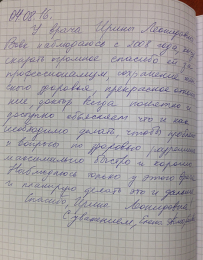 04.08.16.
У врача Ирины Леонидовны
наблюдаюсь с 2008 года, хочу
сказать огромное спасибо ей за
профессионализм, сохранение
моего здоровья, прекрасное
доктор всегда понятно и
доступно объясняет что и как
необходимо делать, чтобы
вопросы по здоровью
максимально быстро и хорошо.
Наблюдаюсь только у этого врача
и планирую делать это и дальше.
Спасибо, Ирина Леонидовна!
С уважением,